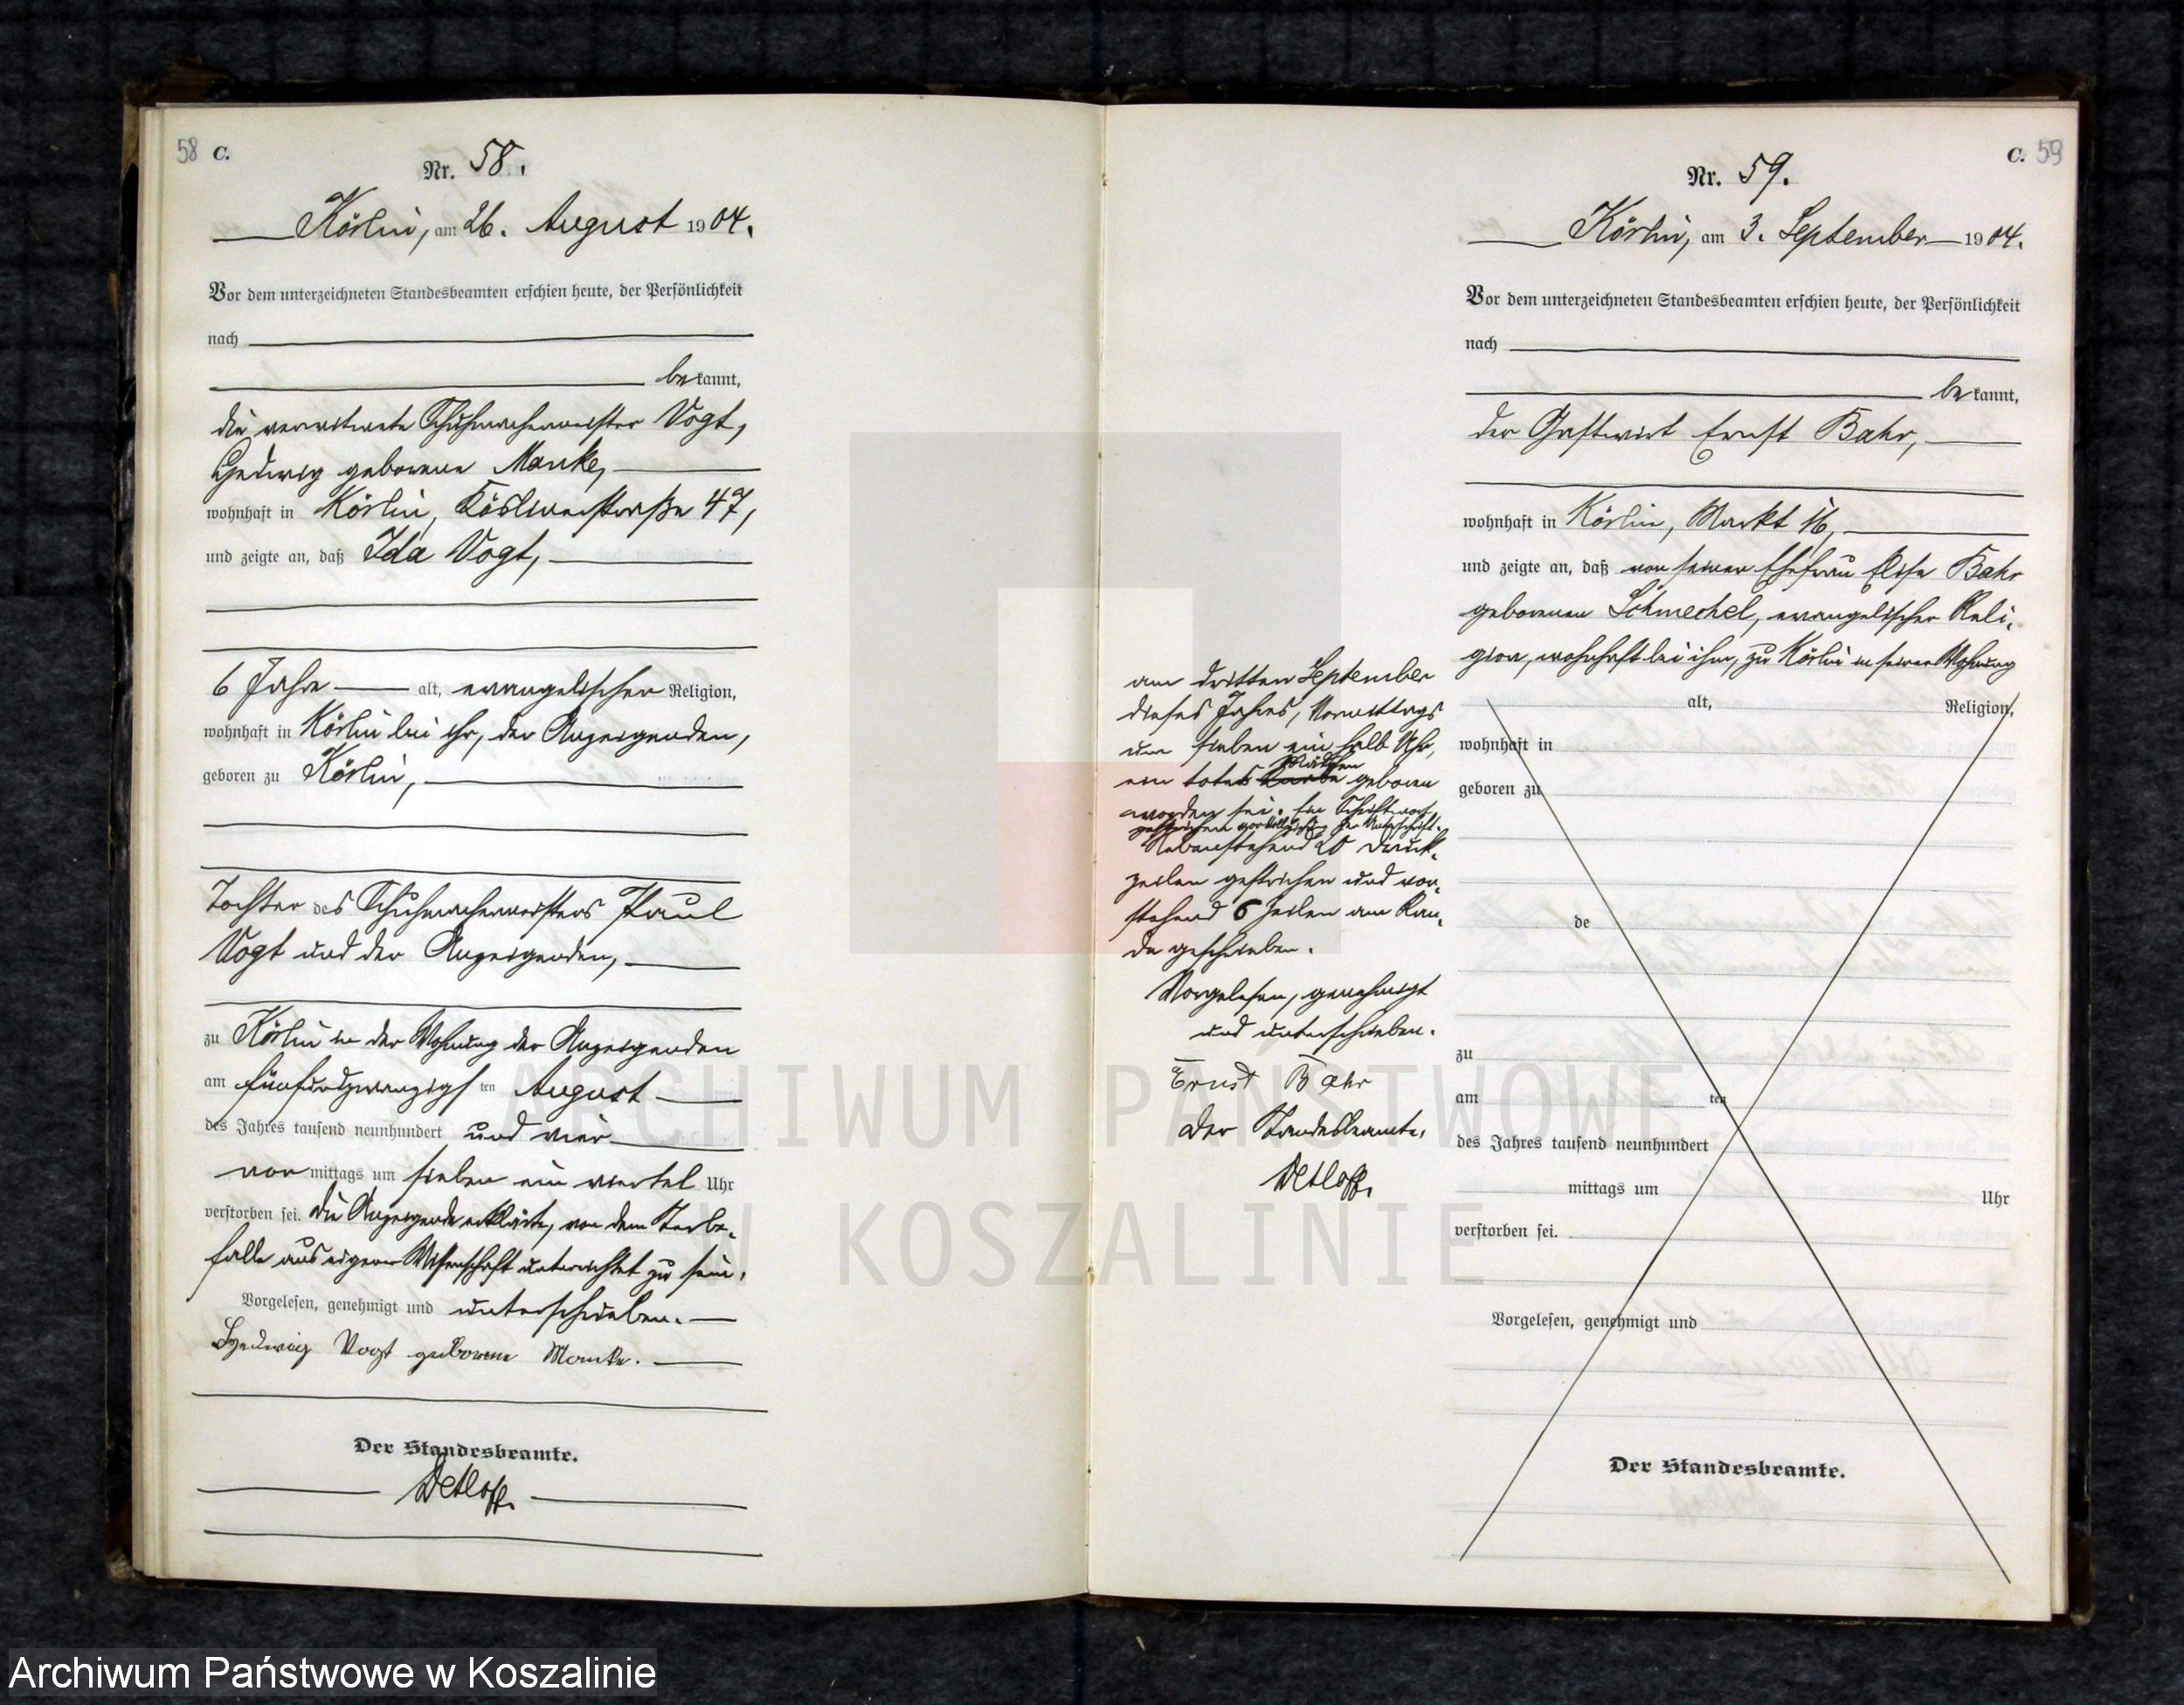 58 C.
Nr. 58.
Körlin, am 26. August 1904.
Vor dem unterzeichneten Standesbeamten erschien heute, der Persönlichkeit
nach
bekannt,
die verwitwete Schuhmachermeister Vogt,
Hedwig geborene Manke,
wohnhaft in Körlin, Cöslinerstraße 47,
und zeigte an, daß Ida Vogt,
6 Jahre alt, evangelischer Religion,
wohnhaft in Körlin bei ihr, der Anzeigenden,
geboren zu Körlin,
Tochter des Schuhmachermeisters Paul
Vogt und der Anzeigenden,
zu Körlin in der Wohnung der Anzeigenden
am fünfundzwanzigsten August
des Jahres tausend neunhundert und vier
vormittags um sieben ein viertel Uhr
verstorben sei. Die Anzeigende erklärte, von dem Sterbe-
falle aus eigener Wissenschaft unterrichtet zu sein.
Vorgelesen, genehmigt und unterschrieben.
Hedwig Vogt geborene Manke.
Der Standesbeamte.
Detloff.
C. 59
Nr. 59.
Körlin, am 3. September 1904.
Vor dem unterzeichneten Standesbeamten erschien heute, der Persönlichkeit
nach
bekannt,
der Gastwirt Ernst Bahr,
wohnhaft in Körlin, Markt 16,
und zeigte an, daß von seiner Ehefrau Elise Bahr
geborenen Schmechel, evangelischer Reli-
gion, wohnhaft bei ihm, zu Körlin in seiner Wohnung
am dritten September
dieses Jahres, Vormittags
um sieben ein halb Uhr,
Mädchen
ein totes Knabe geboren
worden sei. Ein Schriftwort
gestrichen vor Vollziehung der Unterschrift.
Nebenstehend 20 Druck-
zeilen gestrichen und vor-
stehend 6 Zeilen am Ran-
de geschrieben.
Vorgelesen, genehmigt
und unterschrieben.
Ernst Bahr
Der Standesbeamte.
Detloff.
alt, Religion,
wohnhaft in
geboren zu
de
zu
am ten
des Jahres tausend neunhundert
mittags um Uhr
verstorben sei.
Vorgelesen, genehmigt und
Der Standesbeamte.
ARCHIWUM PAŃSTWOWE
W KOSZALINIE
Archiwum Państwowe w Koszalinie